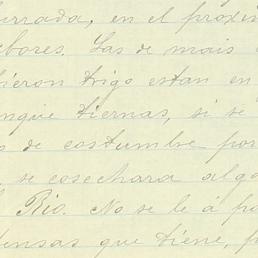 errada, en el proxim
ebores. Las de mais
ieron trigo estan en
nque tiernas, si se
s de costumbre por
, se cosechara algo
l Rio. No se le á po
ensas que tiene, p